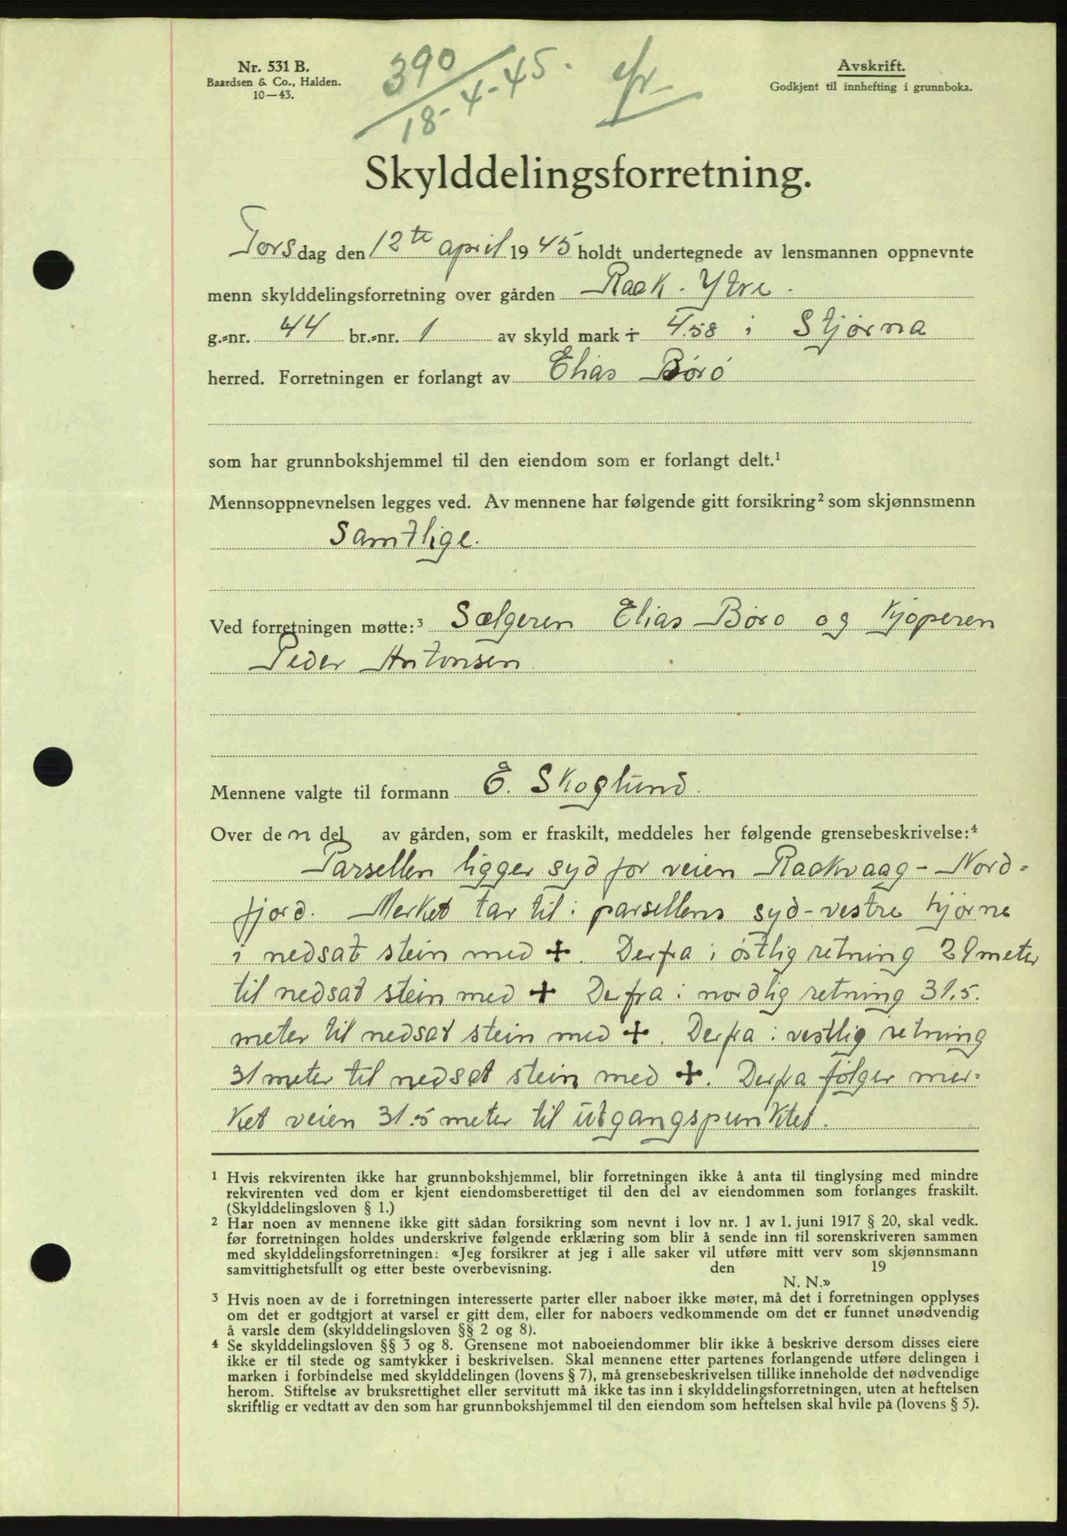 Nr. 531 B.
Baardsen & Co., Halden.
10—43.
390
18-4-45.
Avskrift.
Godkjent til innhefting i grunnboka.
Skylddelingsforretning.
Torsdag den 12te april 1945 holdt undertegnede av lensmannen oppnevnte
menn skylddelingsforretning over gården Raak. Ytre.
g.-nr. 44 br.-nr. 1 av skyld mark 4.58 i Stjørna
herred. Forretningen er forlangt av Elias Børø
som har grunnbokshjemmel til den eiendom som er forlangt delt.¹
Mennsoppnevnelsen legges ved. Av mennene har følgende gitt forsikring² som skjønnsmenn
Samtlige.
Ved forretningen møtte:³ Sælgeren Elias Børø og kjøperen
Peder Antonsen
Mennene valgte til formann E. Skoglund.
Over den del av gården, som er fraskilt, meddeles her følgende grensebeskrivelse:⁴
Parsellen ligger syd for veien Raakvaag - Nord-
fjord. Merket tar til i parsellens syd-vestre hjørne
i nedsat stein med +. Derfra i østlig retning 29 meter
til nedsat stein med + Derfra i nordlig retning 31.5.
meter til nedsat stein med +. Derfra i vestlig retning
31 meter til nedsat stein med +. Derfra følger mer-
ket veien 31.5 meter til utgangspunktet.
¹ Hvis rekvirenten ikke har grunnbokshjemmel, blir forretningen ikke å anta til tinglysing med mindre
rekvirenten ved dom er kjent eiendomsberettiget til den del av eiendommen som forlanges fraskilt.
(Skylddelingsloven § 1.)
² Har noen av mennene ikke gitt sådan forsikring som nevnt i lov nr. 1 av 1. juni 1917 § 20, skal vedk.
før forretningen holdes underskrive følgende erklæring som blir å sende inn til sorenskriveren sammen
med skylddelingsforretningen: «Jeg forsikrer at jeg i alle saker vil utføre mitt verv som skjønnsmann
samvittighetsfullt og etter beste overbevisning. den 19
N. N.»
³ Hvis noen av de i forretningen interesserte parter eller naboer ikke møter, må det i forretningen opplyses
om det er godtgjort at varsel er gitt dem, eller for naboers vedkommende om det er funnet unødvendig
å varsle dem (skylddelingsloven §§ 2 og 8).
⁴ Se skylddelingsloven §§ 3 og 8. Grensene mot naboeiendommer blir ikke å beskrive dersom disses eiere
ikke er til stede og samtykker i beskrivelsen. Skal mennene etter partenes forlangende utføre delingen i
marken i forbindelse med skylddelingen (lovens § 7), må grensebeskrivelsen tillike inneholde det nødvendige
herom. Stiftelse av bruksrettighet eller servitutt må ikke tas inn i skylddelingsforretningen, uten at heftelsen
skriftlig er vedtatt av den som har grunnbokshjemmel til den eiendom som heftelsen skal hvile på (lovens § 5).